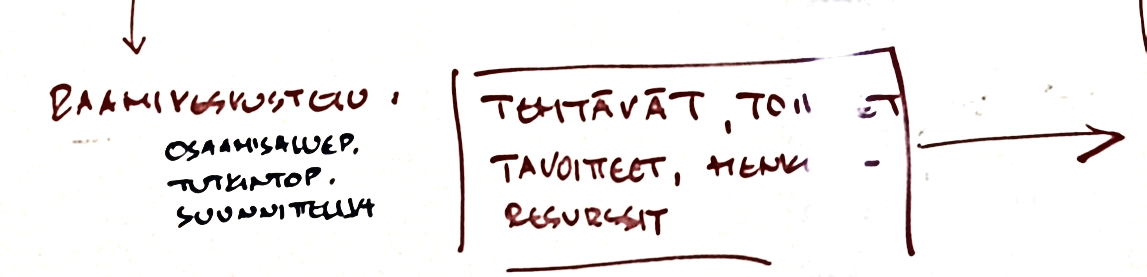 RAAMIKESKUSTELU.
OSAAMISALUEP.
TUTKINTOP.
SUUNNITTELIJA
TEHTÄVÄT,
TAVOITTEET, HENK
RESURSSIT